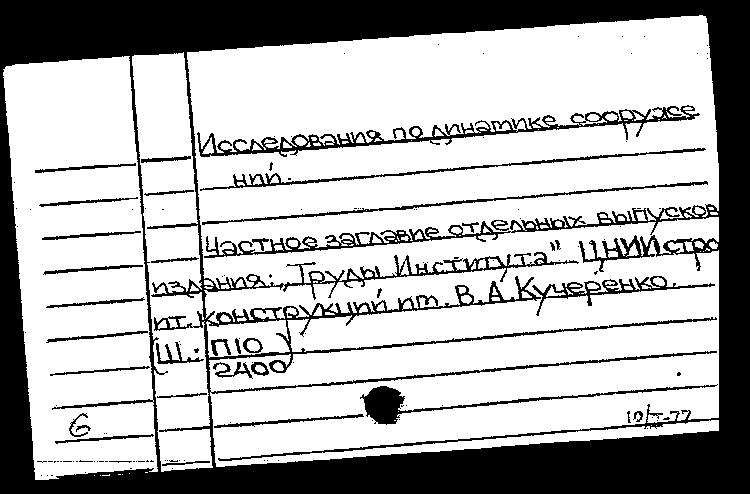 Исследования по динамике сооруже
ний.
Частное заглавие отдельных выпусков
издания: „Труды Института" ЦНИИстро
ит. конструкций им. В.А.Кучеренко.
(Ш.: П10
2400).
6
10/I-77